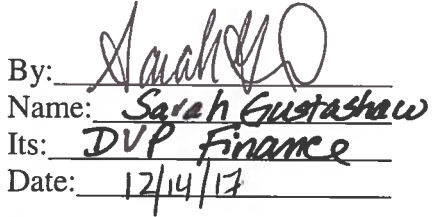 By: Sarah G
Name: Sarah Gustashaw
Its: DVP Finance
Date: 12/14/17